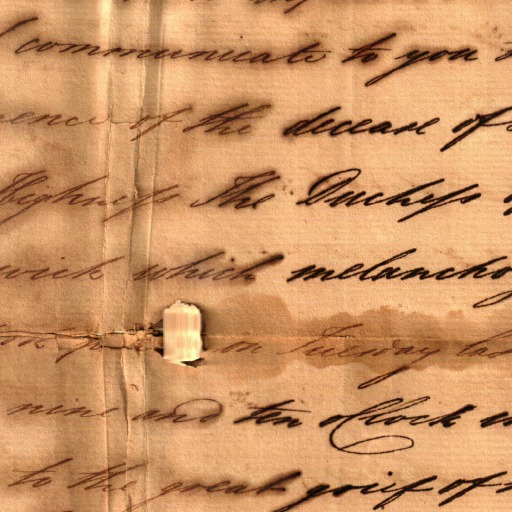 communicate to you
of the decease of
Highness The Duchess
wick which melancho
on Tuesday las
nine and ten oClock
to the great grief of